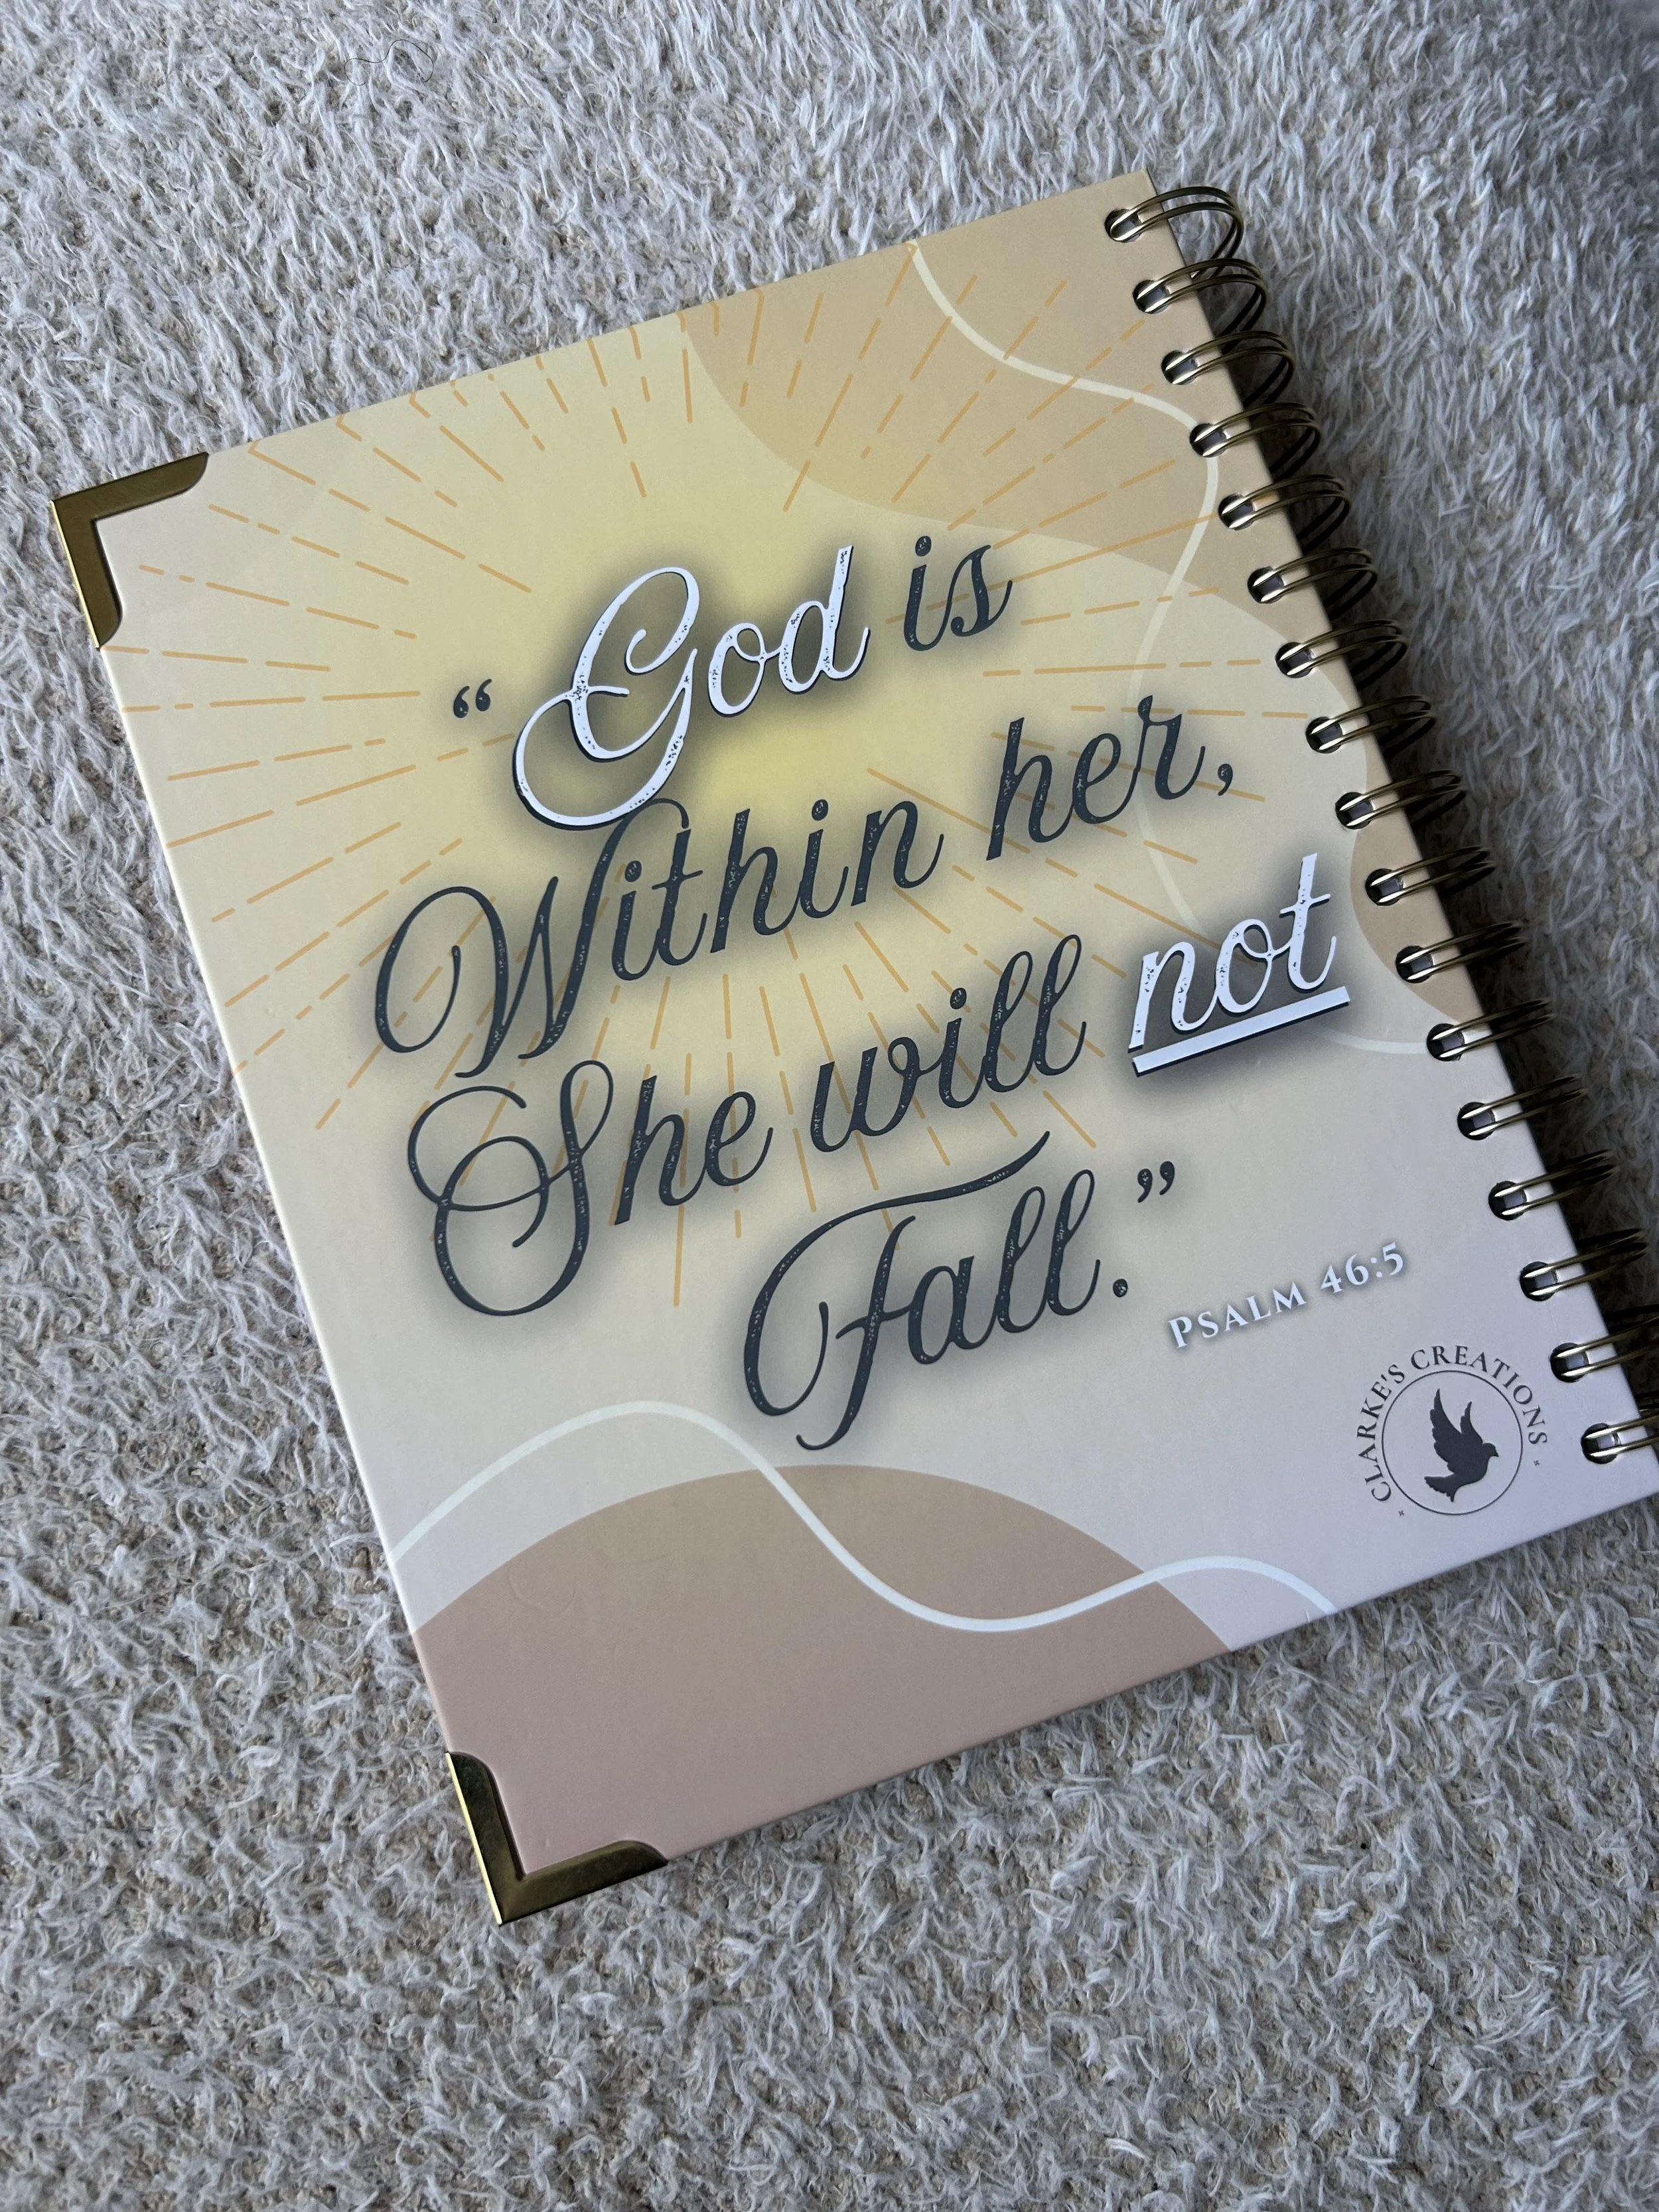 “God is
Within her,
She will not
Fall.”
PSALM 46:5
CLARKE'S CREATIONS